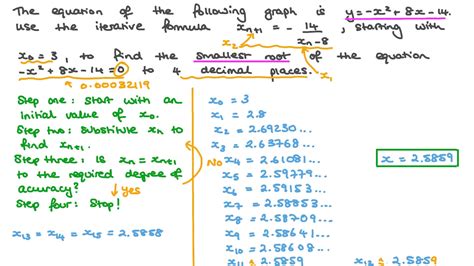 The equation of the following graph is y=-x²+8x-14.
use the iterative formula xₙ₊₁ = - 14/xₙ-8, starting with
x₂
x₁
x₀=3, to find the smallest root of the equation
-x²+8x-14=0 to 4 decimal places.
0.00032119
Step one: Start with an
initial value of x₀.
Step two: substitute xₙ to
find xₙ₊₁.
Step three: is xₙ=xₙ₊₁
to the required degree of
accuracy?
yes
No
Step four: Stop!
x₁₃ = x₁₄ = x₁₅ = 2.5858
x₀ = 3
x₁ = 2.8
x₂ = 2.69230...
x₃ = 2.63768...
x₄ = 2.61081...
x₅ = 2.59779...
x₆ = 2.59153...
x₇ = 2.58853...
x₈ = 2.58709...
x₉ = 2.58641...
x₁₀ = 2.58608...
x₁₁ = 2.5859
x₁₂ = 2.5859
x = 2.5859